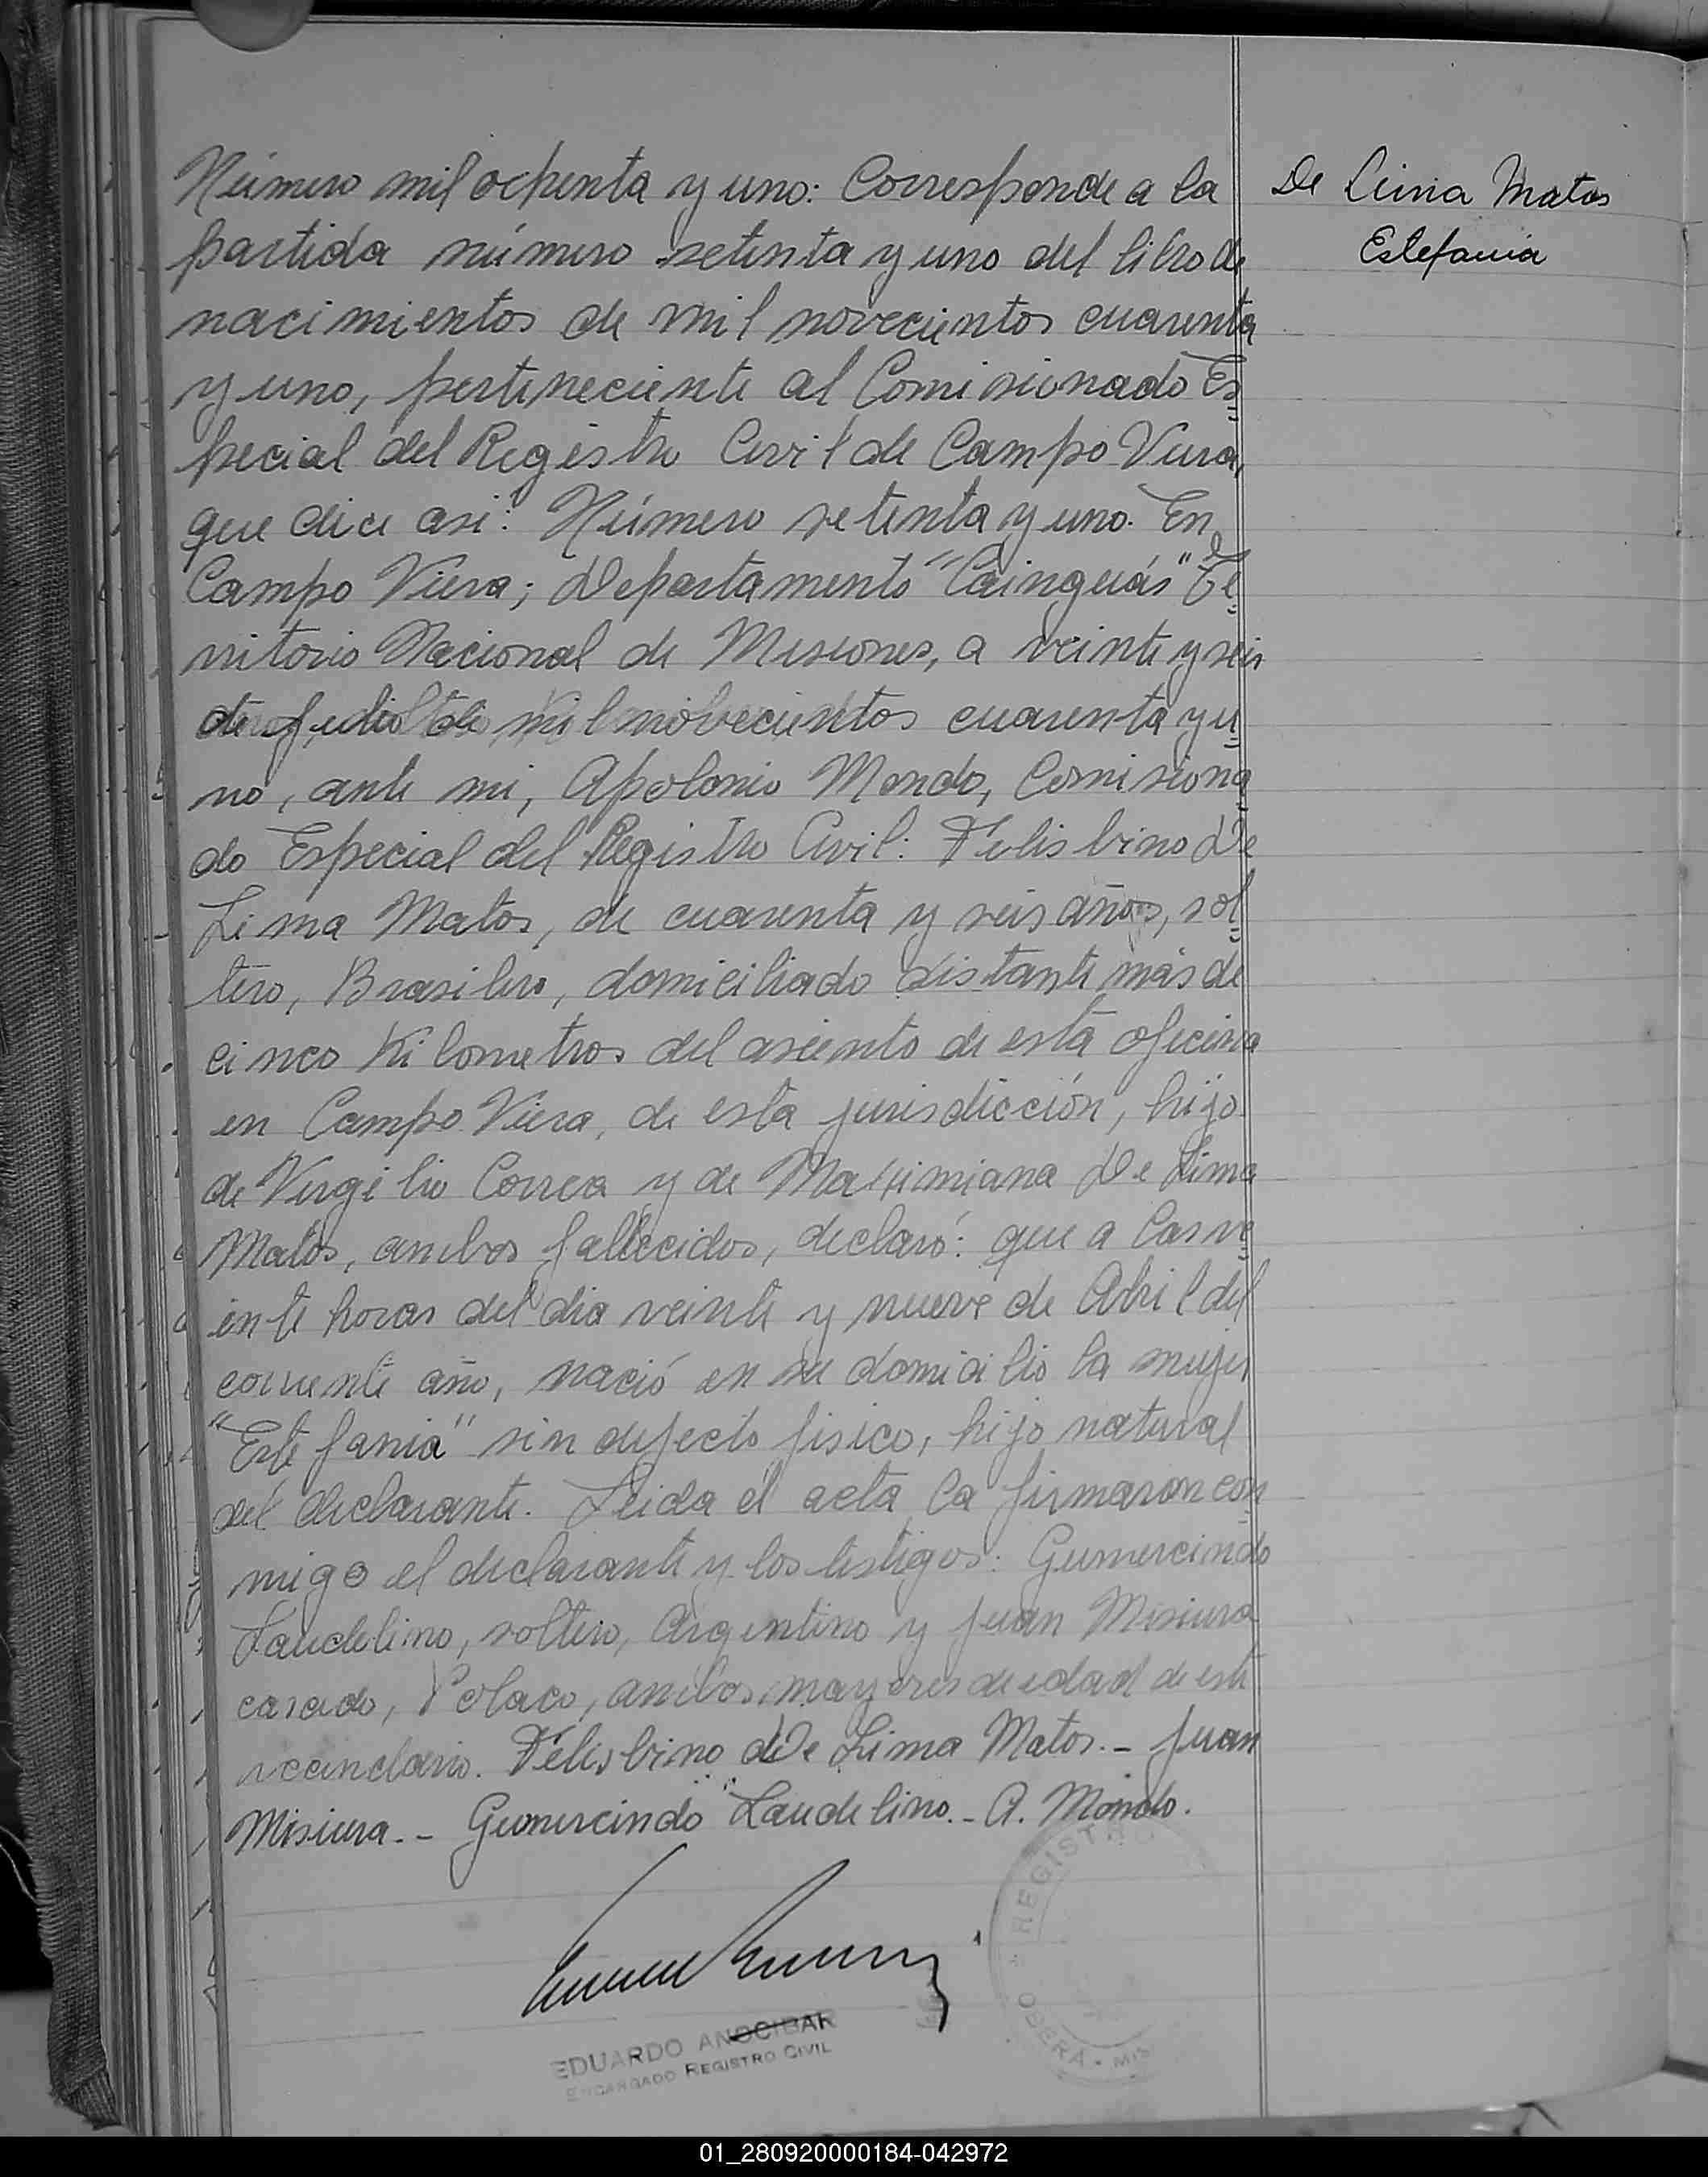 Número mil ochenta y uno: Corresponde a la
De Lima Matos
Estefania
partida número setenta y uno del libro de
nacimientos de mil novecientos cuarenta
y uno, perteneciente al Comisionado Es
pecial del Registro Civil de Campo Viera,
que dice asi: Número setenta y uno. En
Campo Viera; Departamento "Cainguás" Te
rritorio Nacional de Misiones, a veinte y seis
de Julio de mil novecientos cuarenta y u
no, ante mi, Apolonio Mondo, Comisiona
do Especial del Registro Civil: Felisbino De
Lima Matos, de cuarenta y seis años, sol
tero, Brasilero, domiciliado distante más de
cinco Kilometros del asiento de esta oficina
en Campo Viera, de esta jurisdicción, hijo
de Virgilio Correa y de Maximiana De Lima
Matos, ambos fallecidos, declaró: que a las ve
inte horas del dia veinte y nueve de Abril del
corriente año, nació en su domicilio la mujer
"Estefania" sin defecto fisico, hijo natural
del declarante. Leida el acta la firmaron con
migo el declarante y los testigos: Gumercindo
Laudelino, soltero, Argentino y Juan Misiura
casado, Polaco, ambos mayores de edad de este
vecindario. Felisbino De Lima Matos. - Juan
Misiura. - Gumercindo Laudelino. - A. Mondo.
REGISTRO
OBERA - MIS
EDUARDO ANOCIBAR
ENCARGADO REGISTRO CIVIL
01_280920000184-042972